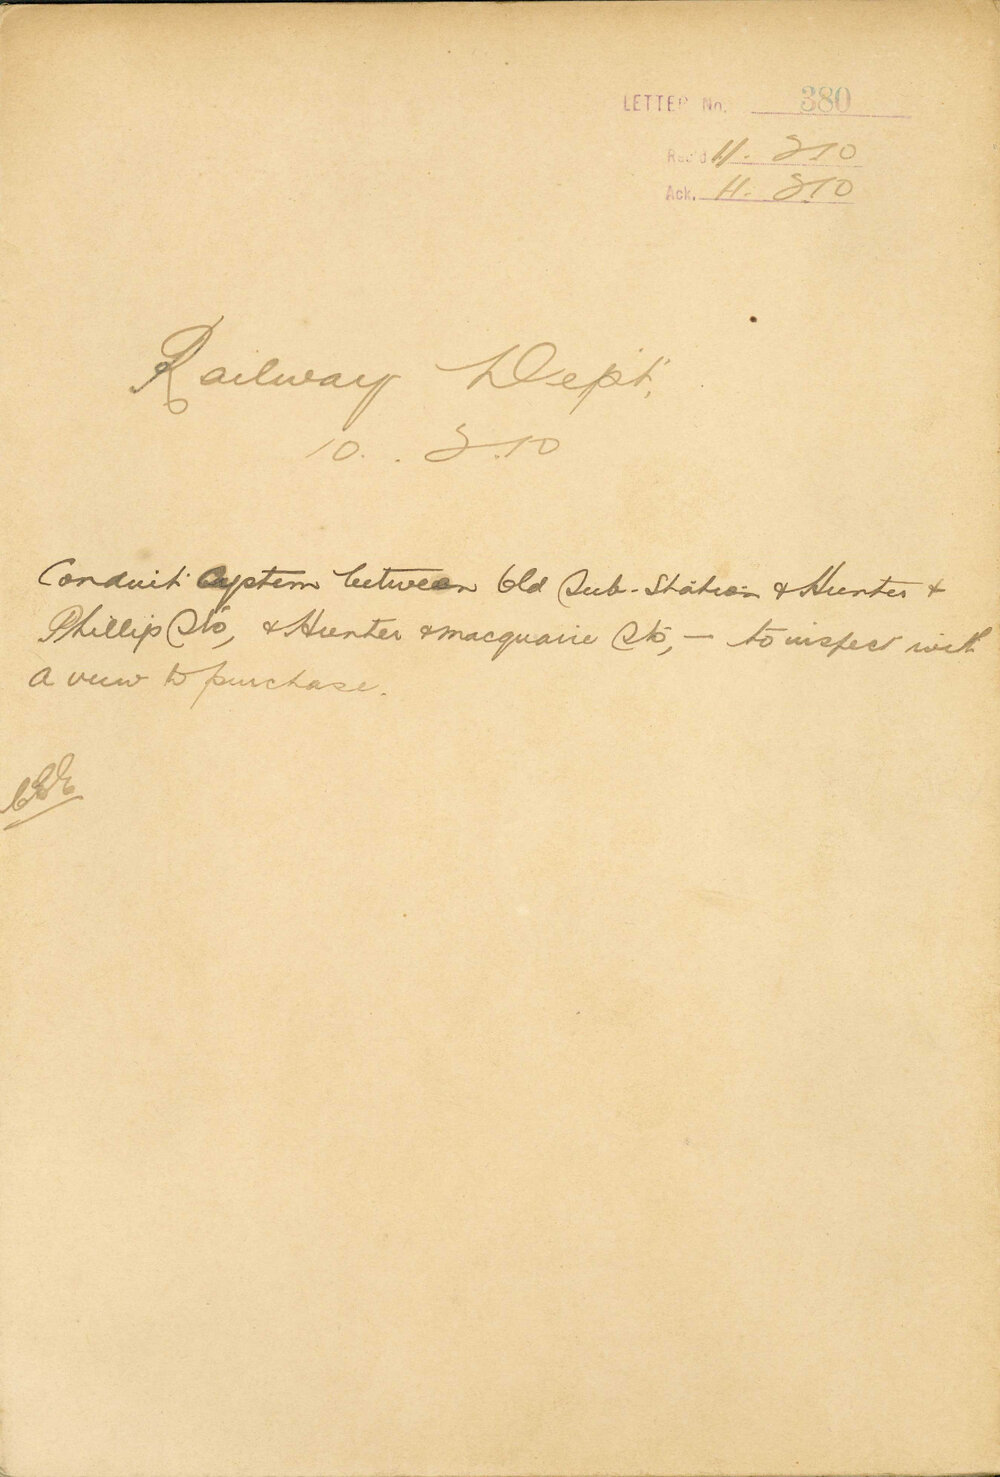 LETTER No. 380
Rec'd 11. 2.10
Ack. 11. 2.10
Railway Dept.
10. . 2.10
Conduit System between Old Sub-Station & Hunter &
Phillip Sts, & Hunter & Macquarie Sts, — to inspect with
a view to purchase.